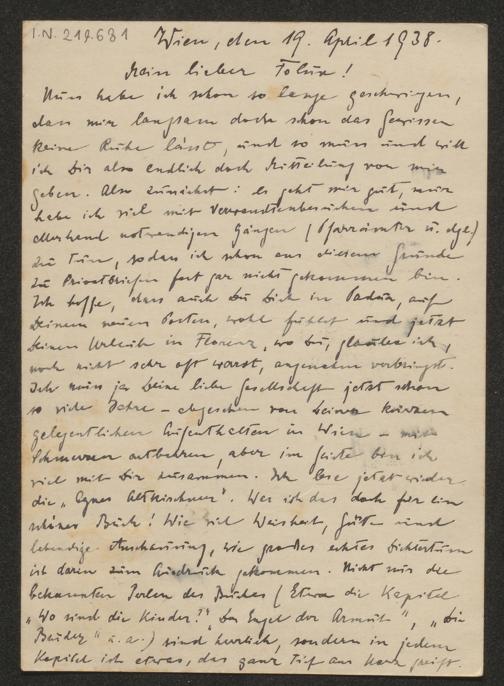 I.N. 219.681
Wien, den 19. April 1938.
Mein lieber Felix!
Nun habe ich schon so lange geschwiegen,
dass mir langsam doch schon das Gewissen
keine Ruhe lässt, und so muss und will
ich Dir also endlich doch Mitteilung von mir
geben. Also zunächst: es geht mir gut, nur
habe ich viel mit Verwandtenbesuchen und
allerhand notwendigen Gängen (Pfarrämter u. dgl.)
zu tun, sodass ich schon aus diesem Grunde
zu Privatbriefen fast gar nicht gekommen bin.
Ich hoffe, dass auch Du Dich in Padua, auf
Deinem neuen Posten, wohl fühlst und jetzt
Deinen Urlaub in Florenz, wo Du, glaube ich,
noch nicht sehr oft warst, angenehm verbringst.
Ich muss ja Deine liebe Gesellschaft jetzt schon
so viele Jahre – abgesehen von Deinen kurzen
gelegentlichen Aufenthalten in Wien – mit
Schmerzen entbehren, aber im Geiste bin ich
viel mit Dir zusammen. Ich lese jetzt wieder
die „Agnes Altkirchner". Was ist das doch für ein
schönes Buch! Wie viel Weisheit, Güte und
lebendige Anschauung, wie großes echtes Dichtertum
ist darin zum Ausdruck gekommen. Nicht nur die
bekannten Perlen des Buches (Etwa die Kapitel
„Wo sind die Kinder?", „Der Engel der Armut", „Die
Brüder" u. a.) sind herrlich, sondern in jedem
Kapitel ist etwas, das ganz tief ans Herz greift.